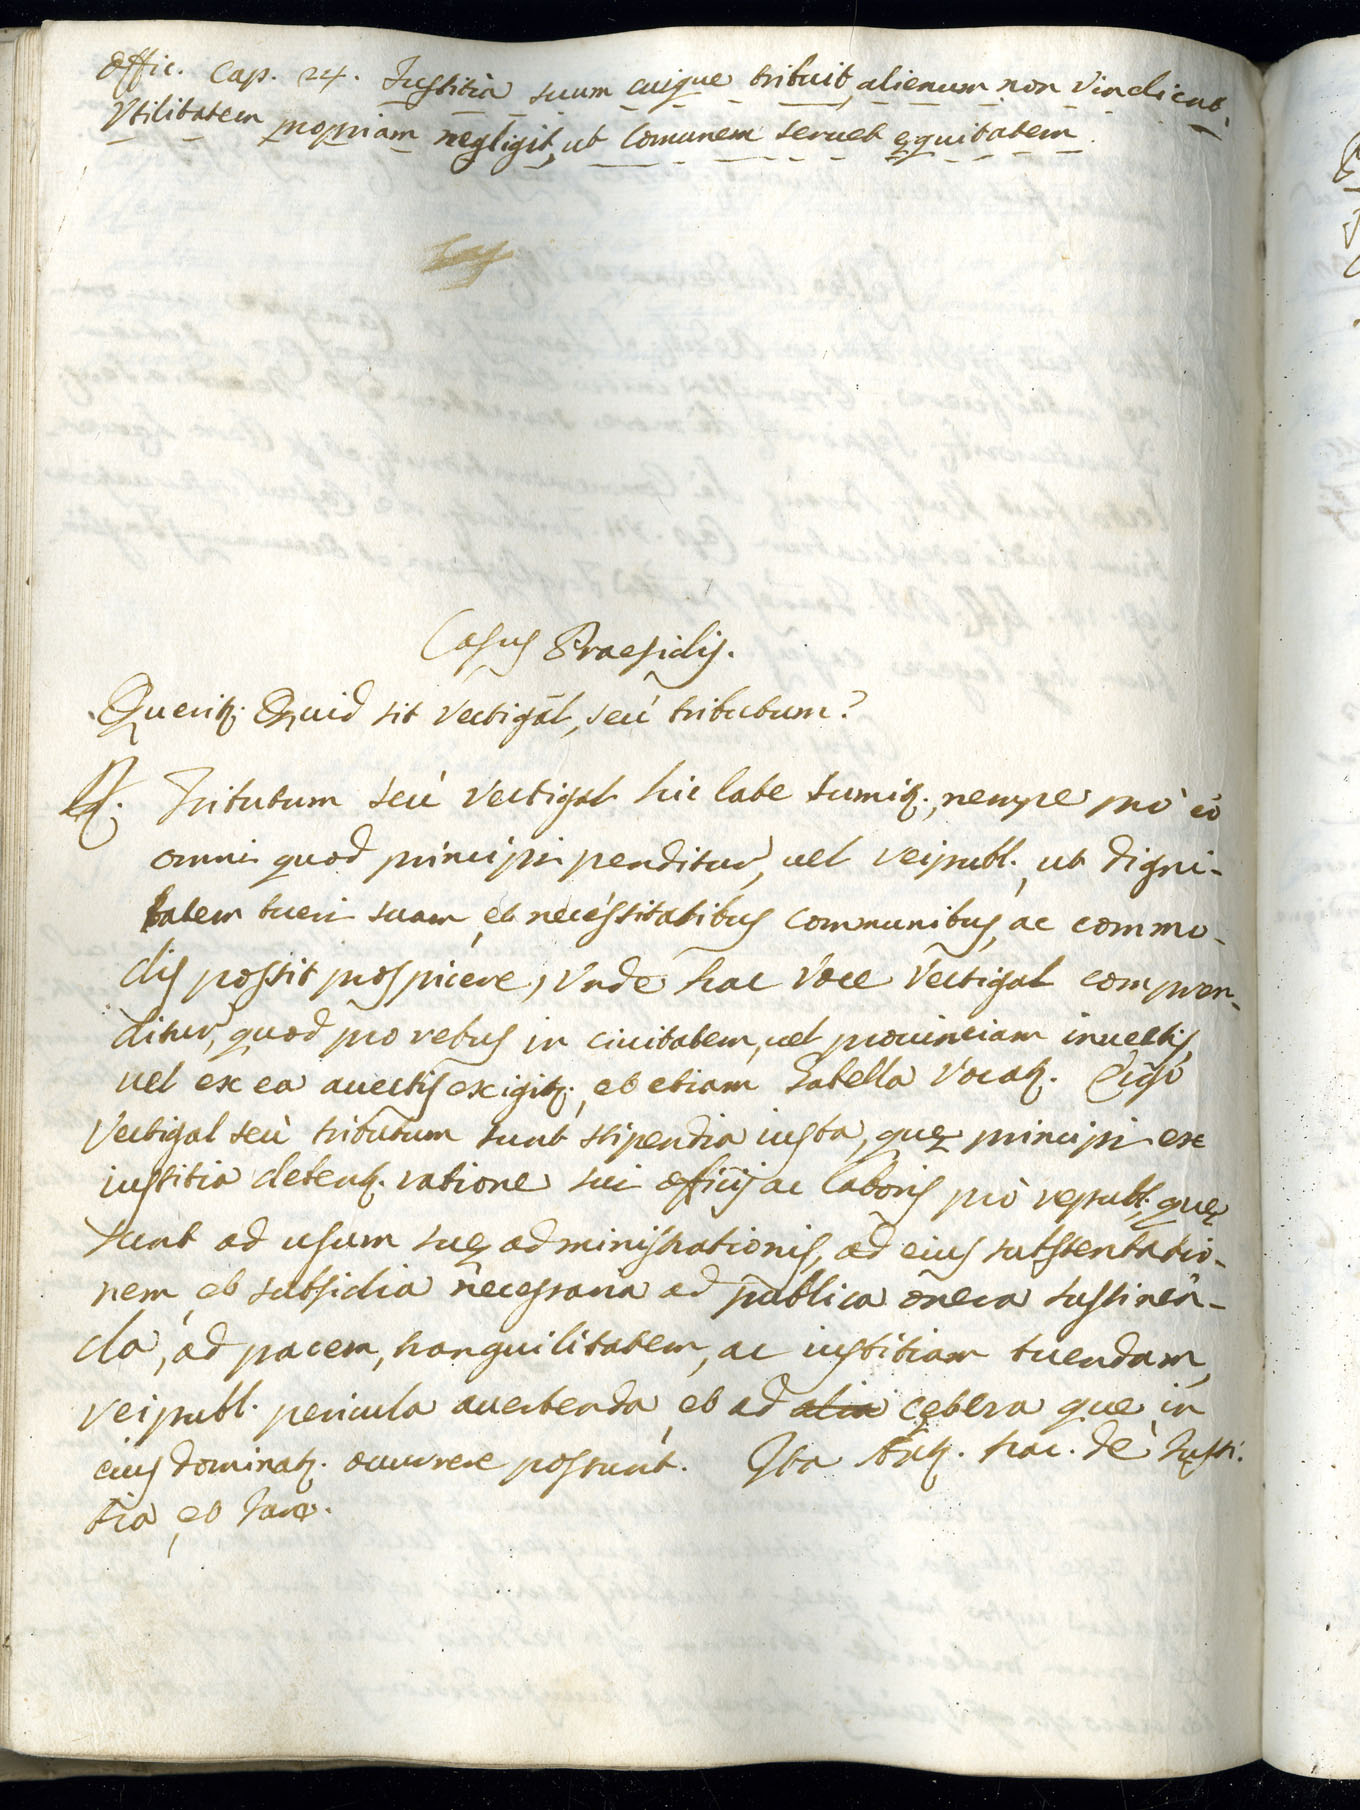 Offic. Cap. 24. Justitia suum cuique tribuit, alienum non vindicat,
Vtilitatem propriam negligit, ut Comunem seruet ęquitatem.
Casus Praesidis.
Queritʒ. Quid sit Vectigal, seù tributum?
R. Tributum seù Vectigal hic late sumitʒ., nempe prò eo
omni quod principi penditur, uel reipubl., ut digni-
tatem tueri suam, et necessitatibus communibus, ac commo-
dis possit prospicere, Vnde hac voce Vectigal compren-
ditur, quod pro rebus in ciuitatem, uel prouinciam inuectis,
uel ex ea auectis exigitʒ., et etiam Gabella Vocatʒ. Ergo
Vectigal seù tributum sunt stipendia iusta, quę principi ex
iustitia debentʒ. ratione sui officij ac laboris prò republ., quę
sunt ad usum suę administrationis, ad eius substentatio-
nem, et subsidia necessaria ad publica onera sustinen-
da, ad pacem, tranquilitatem, ac iustitiam tuendam,
reipubl. pericula auertenda, et ad alia cętera que in
eius dominatʒ. occurrere possunt. Ita trac. de Justi-
tia, et Jure.